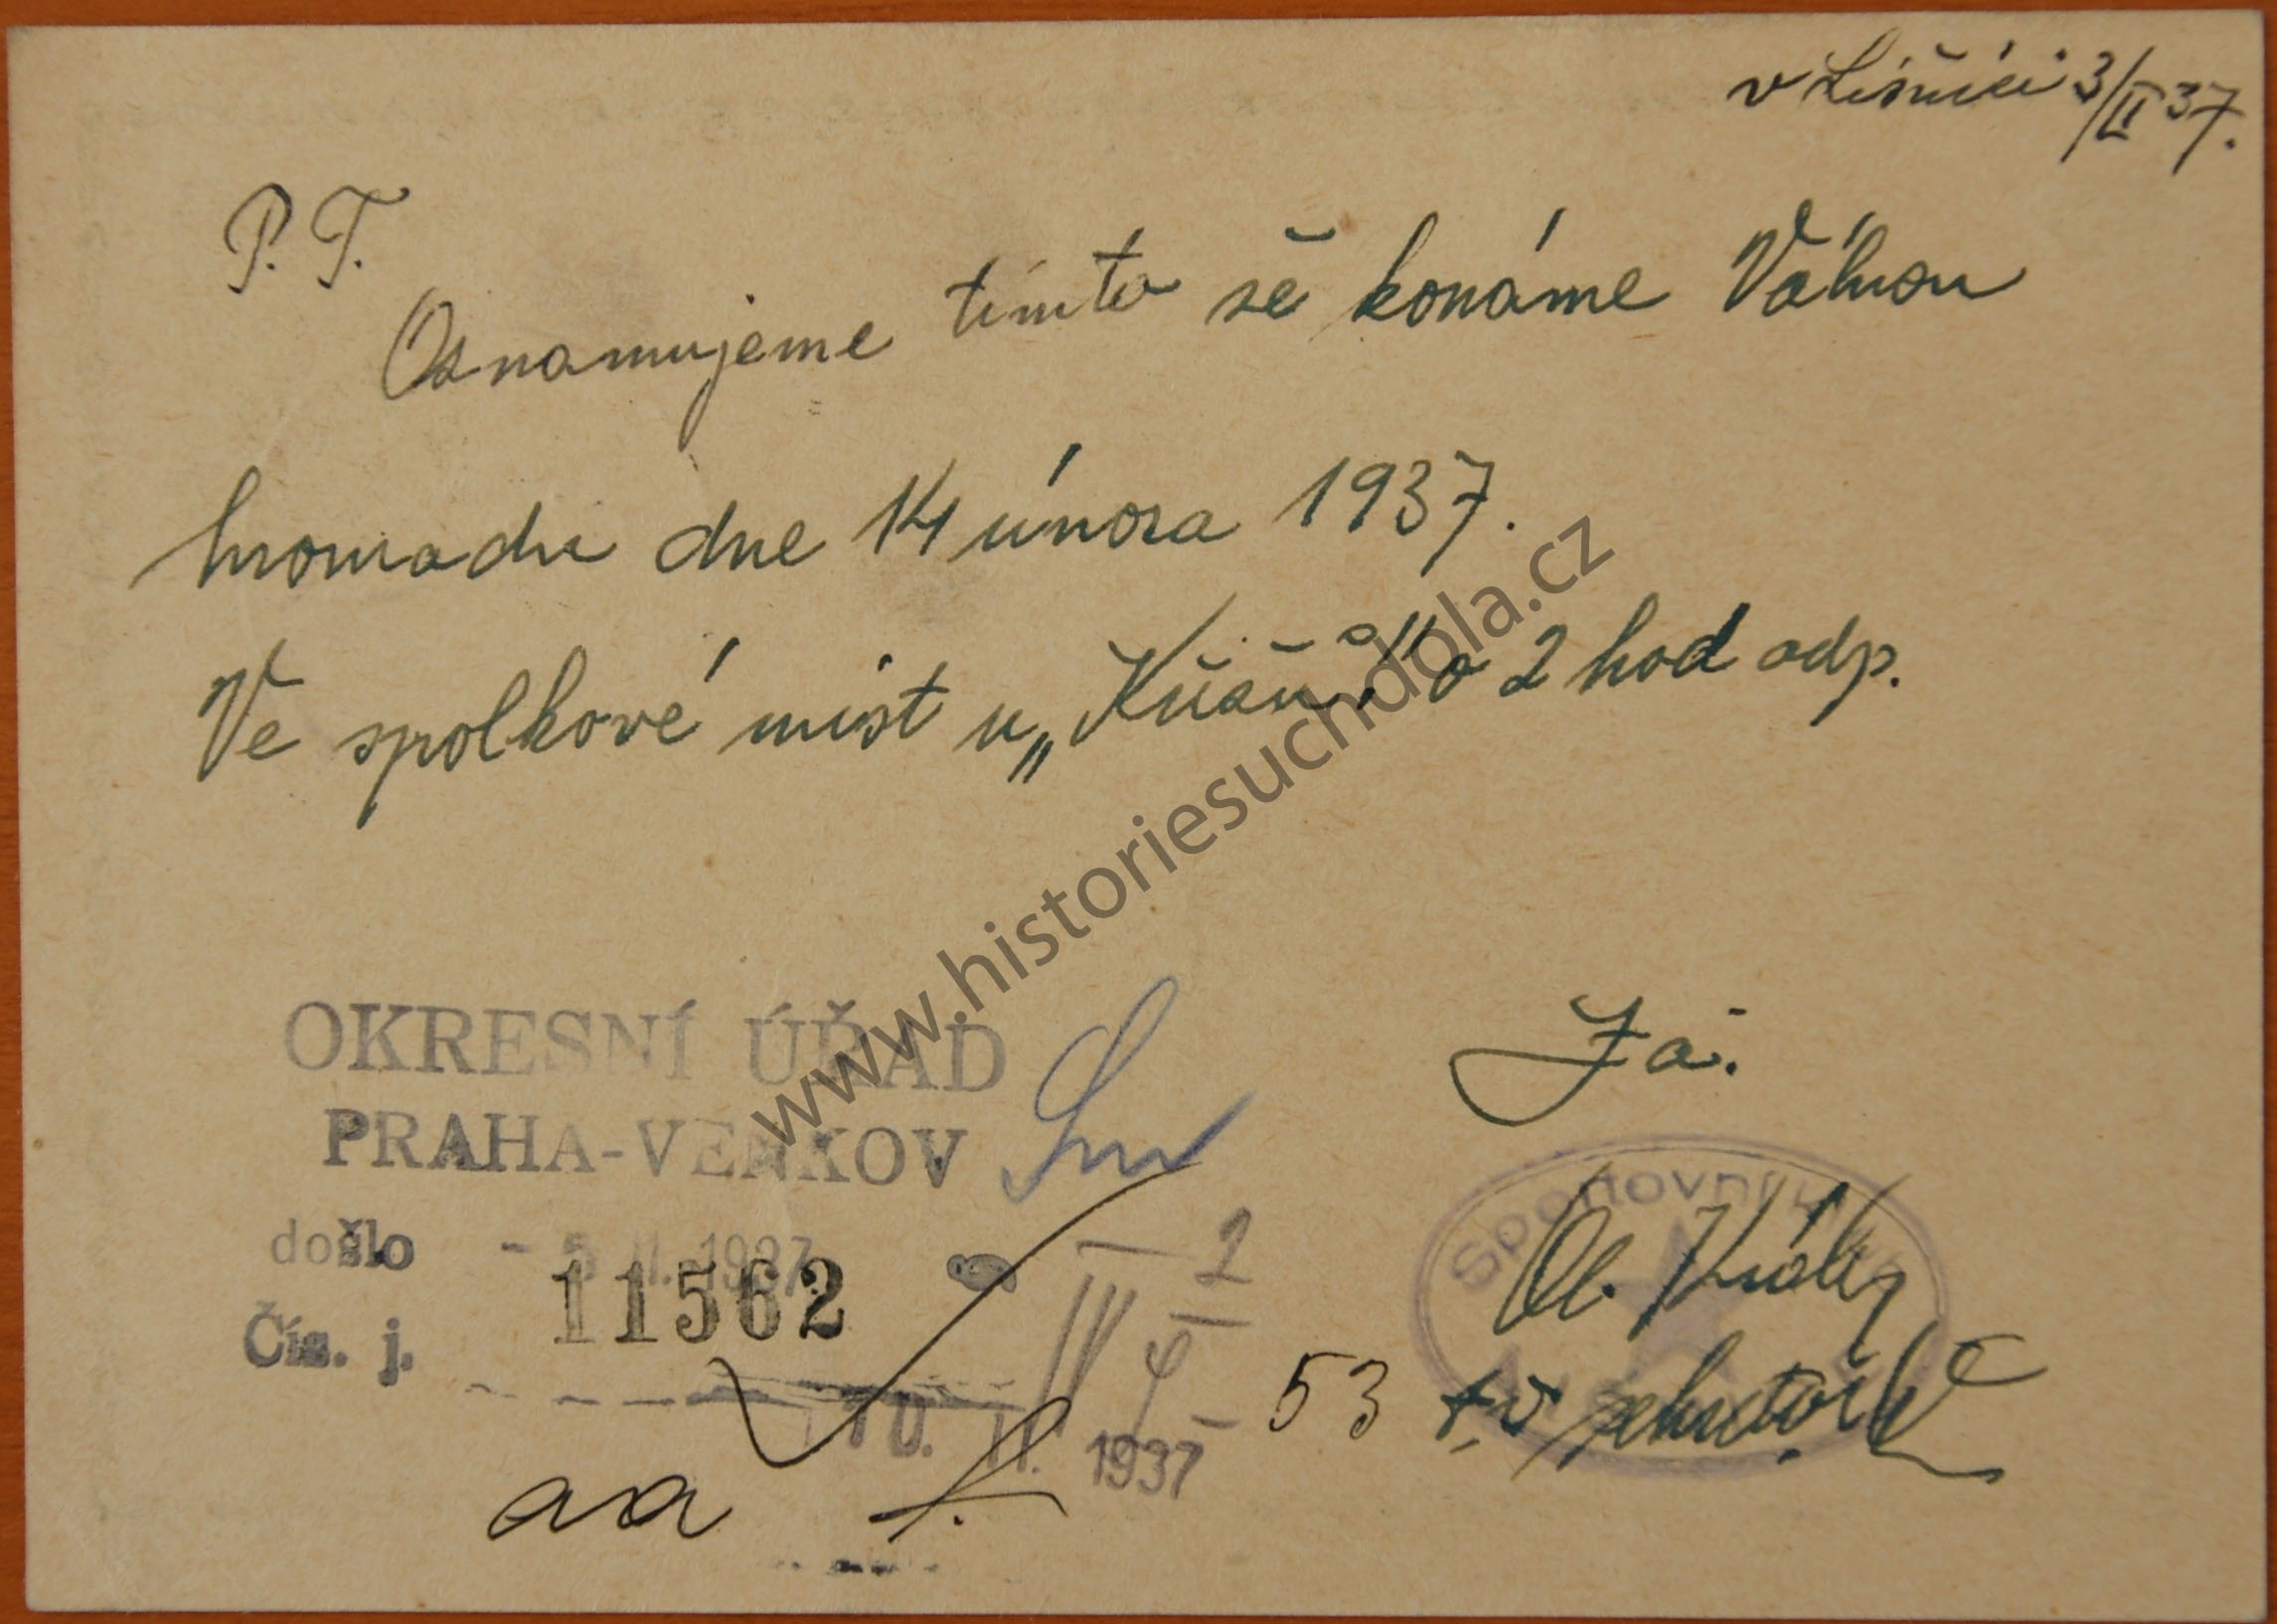 v Lišnici 3/II 37.
P. T.
Oznamujeme tímto že konáme Valnou
hromadu dne 14 února 1937.
Ve spolkové míst u „ o 2 hod odp.
www.historiesuchdola.cz
OKRESNÍ ÚŘAD
PRAHA-VENKOV
došlo - 5. II. 1937
Čís. j. 11562
Za.
Sportovní
53
10. II. 1937
aa